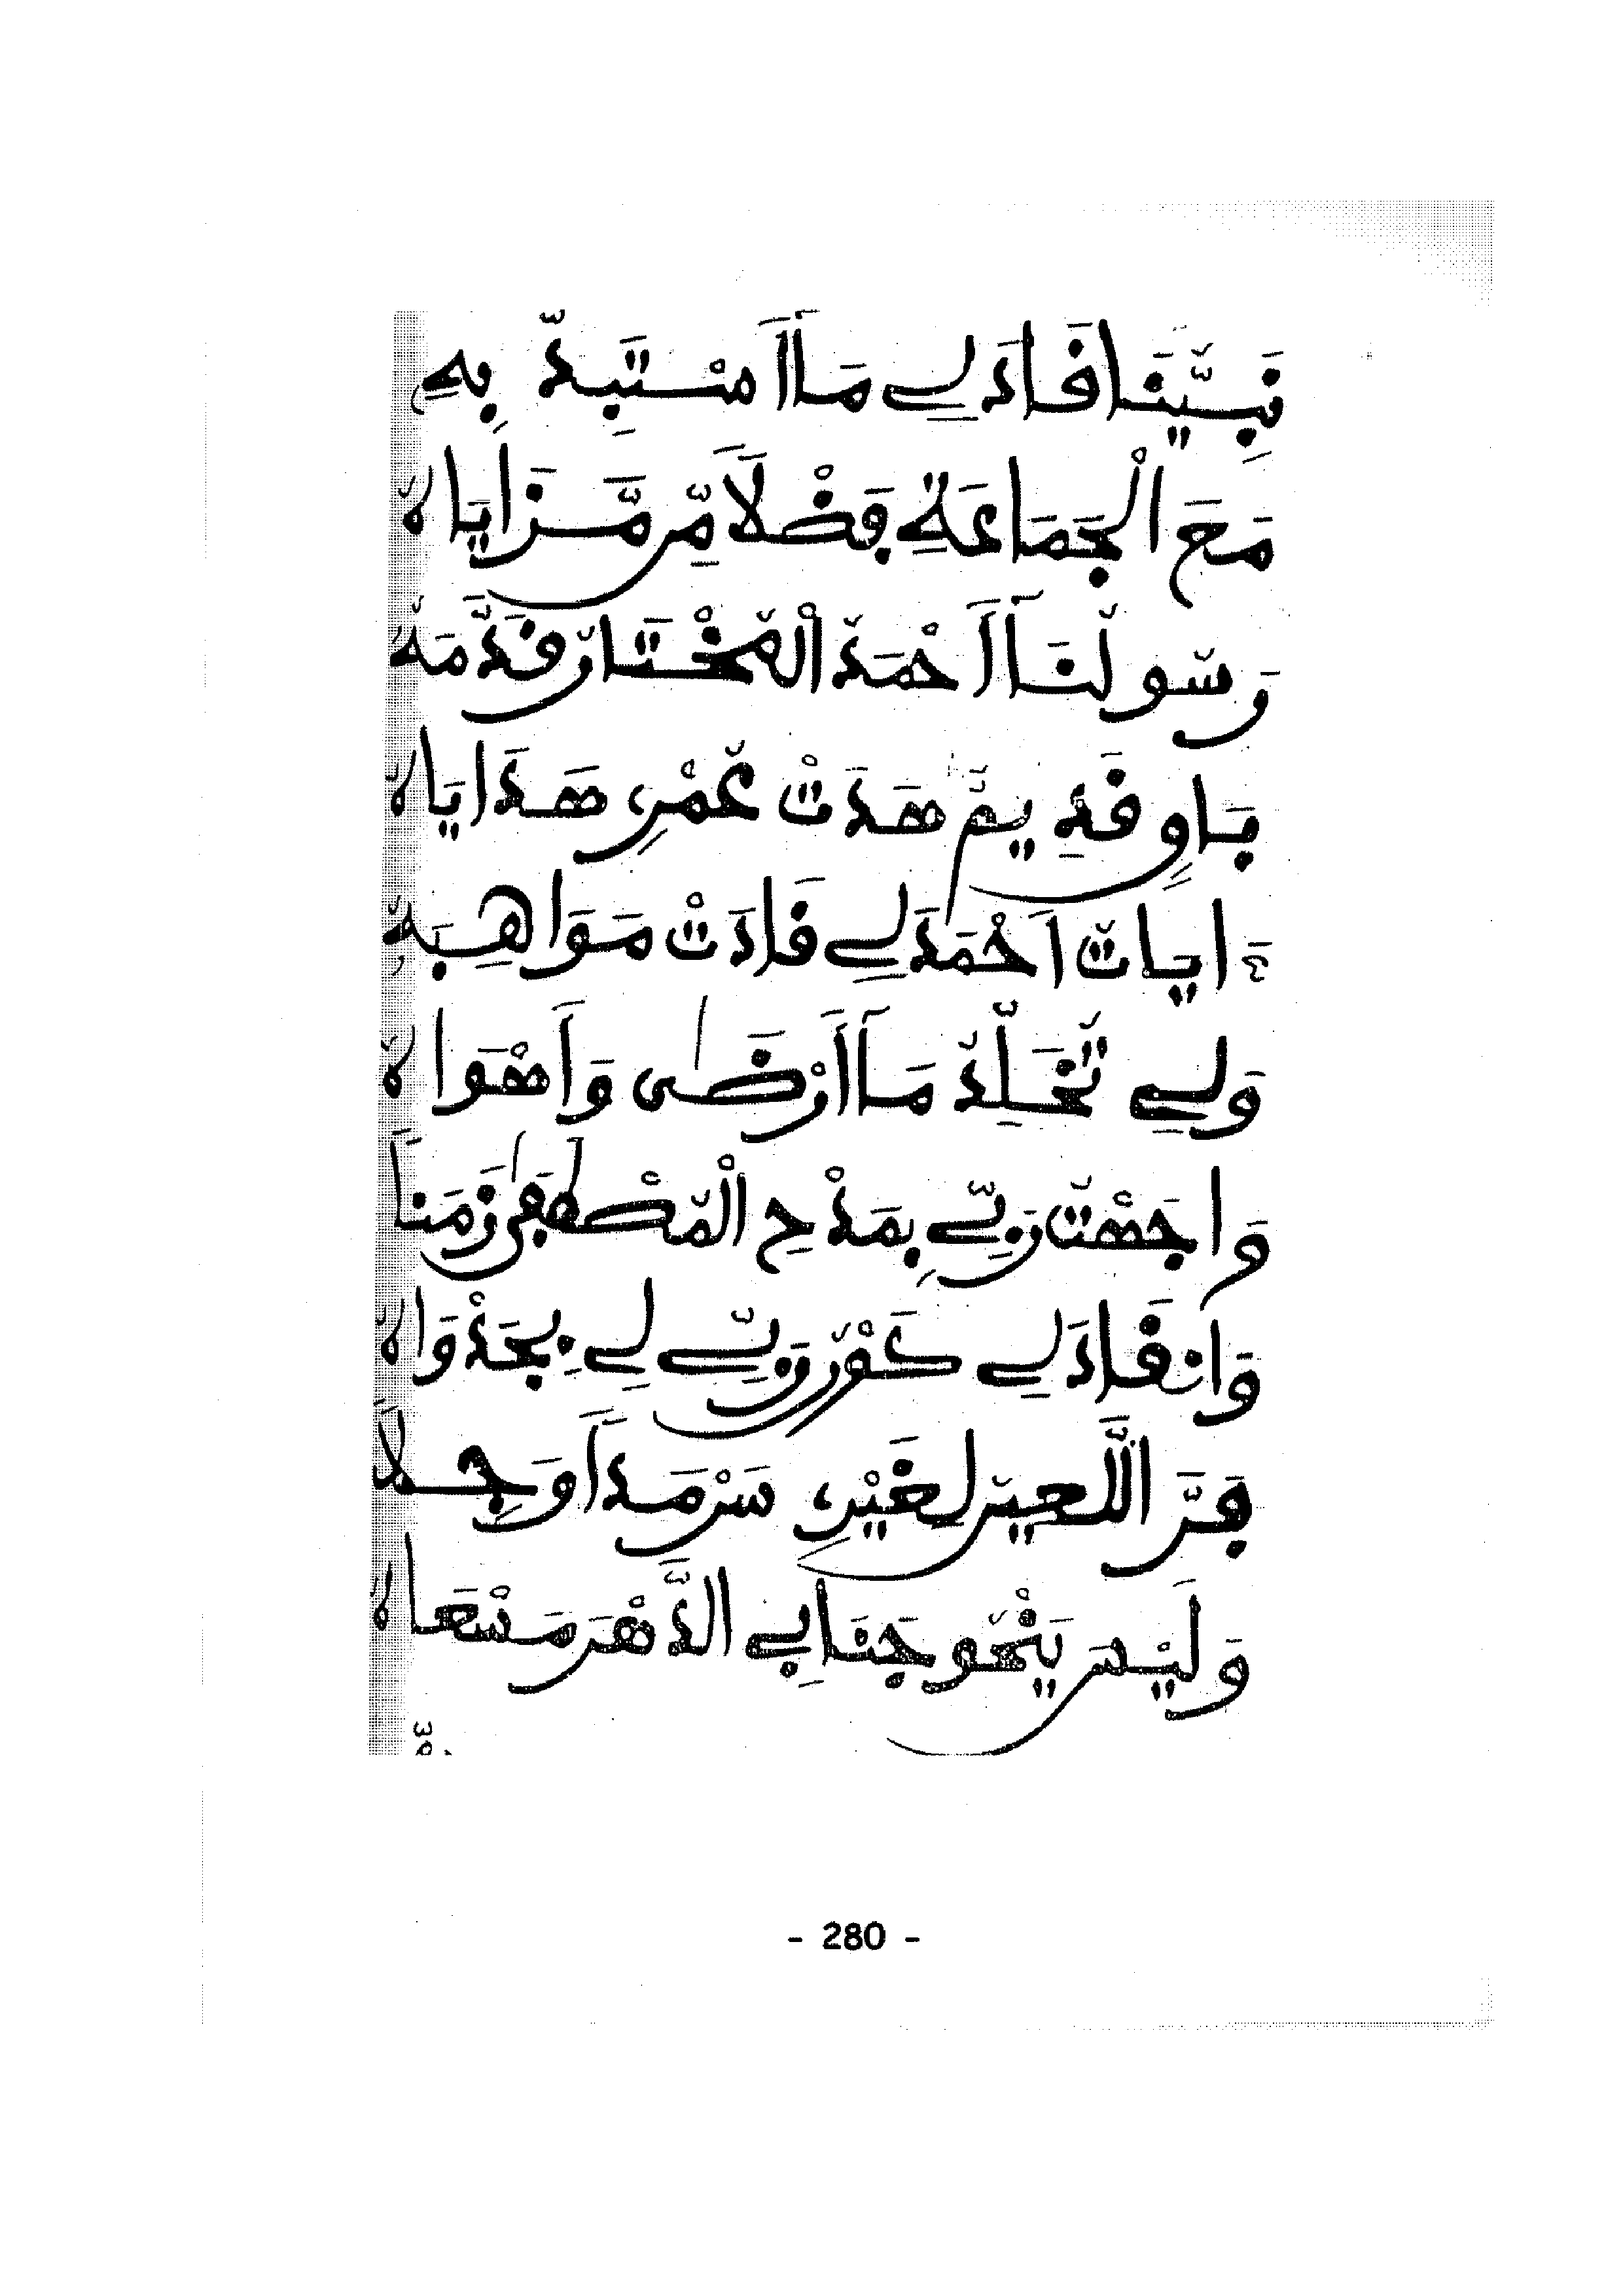 نَبِيُّنَا قَادَ لِي مَا أَسْتَبِدُّ بِهِ
مَعَ الْجَمَاعَةِ فَضْلاً مِّن مَّزَايَاهُ
وَسُولُنَا أَحْمَدُ الْمُخْتَارُ قَدَّمَهُ
بَاوٍ قَدِيمٌ هَدَتْ عُمْرِي هَدَايَاهُ
ءَايَاتُ أَحْمَدَ لِي قَادَتْ مَوَاهِبُهُ
وَلِي تُخَلِّدُ مَا أَرْضَى وَأَهْوَاهُ
وَاجَهْتُ رَبِّي بِمَدْحِ الْمُصْطَفَى زَمَناً
وَانْقَادَ لِي كَوْنُ رَبِّي لِي بِجَدْوَاهُ
فَرَّ اللَّعِينُ لِغَيْرِي سَرْمَداً وَجِلاً
وَلَيْسَ يَنْحُو جَنَابِي الدَّهْرَ مَسْعَاهُ
- 280 -